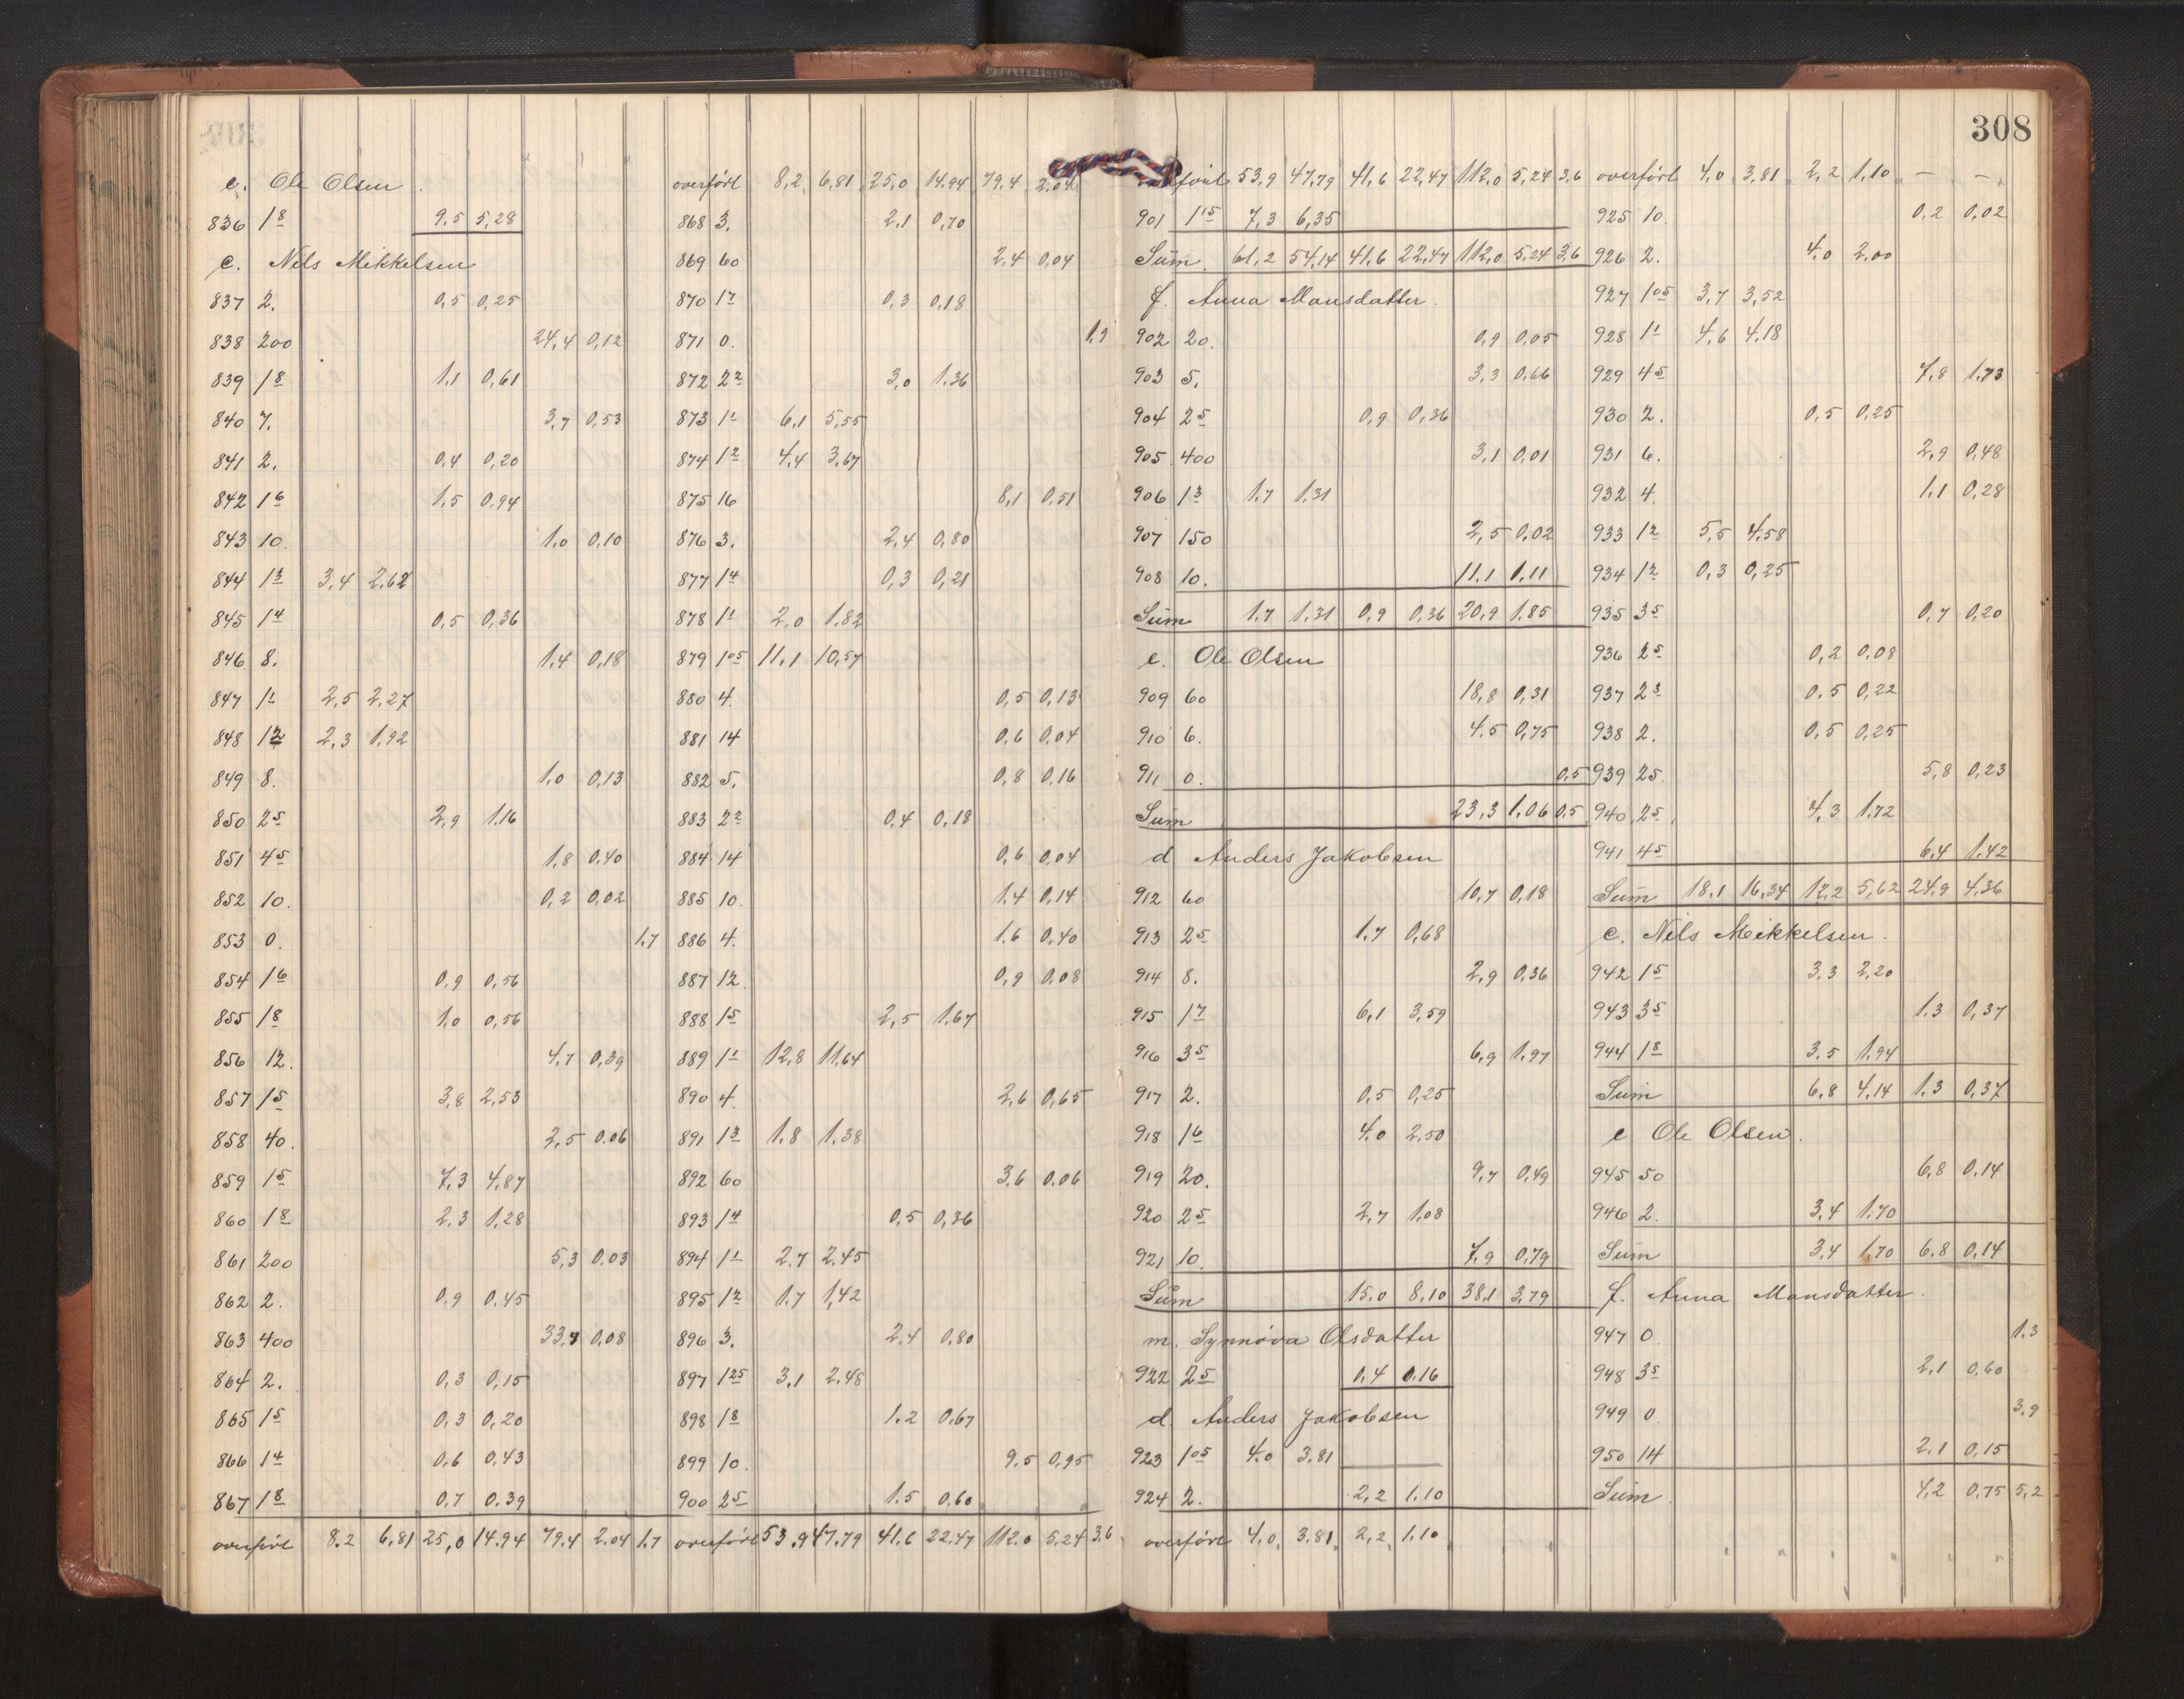 308
e. Ole Olsen
836 1 8 9,5 5,28
e. Nils Mikkelsen
837 2. 0,5 0,25
838 200 24,4 0,12
839 1 8 1,1 0,61
840 7. 3,7 0,53
841 2. 0,4 0,20
842 1 6 1,5 0,94
843 10. 1,0 0,10
844 1 3 3,4 2,62
845 1 4 0,5 0,36
846 8. 1,4 0,18
847 1 1 2,5 2,27
848 1 2 2,3 1,92
849 8. 1,0 0,13
850 2 5 2,9 1,16
851 4 5 1,8 0,40
852 10. 0,2 0,02
853 0. 1,7
854 1 6 0,9 0,56
855 1 8 1,0 0,56
856 12. 4,7 0,39
857 1 5 3,8 2,53
858 40. 2,5 0,06
859 1 5 7,3 4,87
860 1 8 2,3 1,28
861 200 5,3 0,03
862 2. 0,9 0,45
863 400 33,7 0,08
864 2. 0,3 0,15
865 1 5 0,3 0,20
866 1 4 0,6 0,43
867 1 8 0,7 0,39
overført 8,2 6,81 25,0 14,94 79,4 2,04 1,7
overført 8,2 6,81 25,0 14,94 79,4 2,04
868 3. 2,1 0,70
869 60 2,4 0,04
870 1 7 0,3 0,18
871 0. 1,9
872 2 2 3,0 1,36
873 1 1 6,1 5,55
874 1 2 4,4 3,67
875 16 8,1 0,51
876 3. 2,4 0,80
877 1 4 0,3 0,21
878 1 1 2,0 1,82
879 1 05 11,1 10,57
880 4. 0,5 0,13
881 14 0,6 0,04
882 5. 0,8 0,16
883 2 2 0,4 0,18
884 14 0,6 0,04
885 10. 1,4 0,14
886 4. 1,6 0,40
887 12. 0,9 0,08
888 1 5 2,5 1,67
889 1 1 12,8 11,64
890 4. 2,6 0,65
891 1 3 1,8 1,38
892 60 3,6 0,06
893 1 4 0,5 0,36
894 1 1 2,7 2,45
895 1 2 1,7 1,42
896 3. 2,4 0,80
897 1 25 3,1 2,48
898 1 8 1,2 0,67
899 10. 9,5 0,95
900 2 5 1,5 0,60
overført 53,9 47,79 41,6 22,47 112,0 5,24 3,6
overført 53,9 47,79 41,6 22,47 112,0 5,24 3,6
901 1 15 7,3 6,35
Sum. 61,2 54,14 41,6 22,47 112,0 5,24 3,6
f. Anna Monsdatter.
902 20. 0,9 0,05
903 5. 3,3 0,66
904 2 5 0,9 0,36
905 400 3,1 0,01
906 1 3 1,7 1,31
907 150 2,5 0,02
908 10. 11,1 1,11
Sum 1,7 1,31 0,9 0,36 20,9 1,85
e. Ole Olsen
909 60 18,8 0,31
910 6. 4,5 0,75
911 0. 0,5
Sum 23,3 1,06 0,5
d Anders Jakobsen
912 60 10,7 0,18
913 2 5 1,7 0,68
914 8. 2,9 0,36
915 1 7 6,1 3,59
916 3 5 6,9 1,97
917 2. 0,5 0,25
918 1 6 4,0 2,50
919 20. 9,7 0,49
920 2 5 2,7 1,08
921 10. 7,9 0,79
Sum 15,0 8,10 38,1 3,79
m. Synnøva Olsdatter
922 2 5 0,4 0,16
d. Anders Jakobsen
923 1 05 4,0 3,81
924 2. 2,2 1,10
overført 4,0 3,81 2,2 1,10
overført 4,0 3,81 2,2 1,10 — —
925 10. 0,2 0,02
926 2. 4,0 2,00
927 1 05 3,7 3,52
928 1 1 4,6 4,18
929 4 5 7,8 1,73
930 2. 0,5 0,25
931 6. 2,9 0,48
932 4. 1,1 0,28
933 1 2 5,5 4,58
934 1 2 0,3 0,25
935 3 5 0,7 0,20
936 2 5 0,2 0,08
937 2 3 0,5 0,22
938 2. 0,5 0,25
939 25. 5,8 0,23
940 2 5 4,3 1,72
941 4 5 6,4 1,42
Sum 18,1 16,34 12,2 5,62 24,9 4,36
c. Nils Meikkelsen.
942 1 5 3,3 2,20
943 3 5 1,3 0,37
944 1 8 3,5 1,94
Sum 6,8 4,14 1,3 0,37
e Ole Olsen.
945 50 6,8 0,14
946 2. 3,4 1,70
Sum 3,4 1,70 6,8 0,14
f. Anna Monsdatter.
947 0 1,3
948 3 5 2,1 0,60
949 0 3,9
950 14 2,1 0,15
Sum. 4,2 0,75 5,2